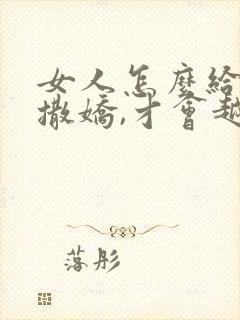 女人怎麼給
撒嬌,才會越
落彤